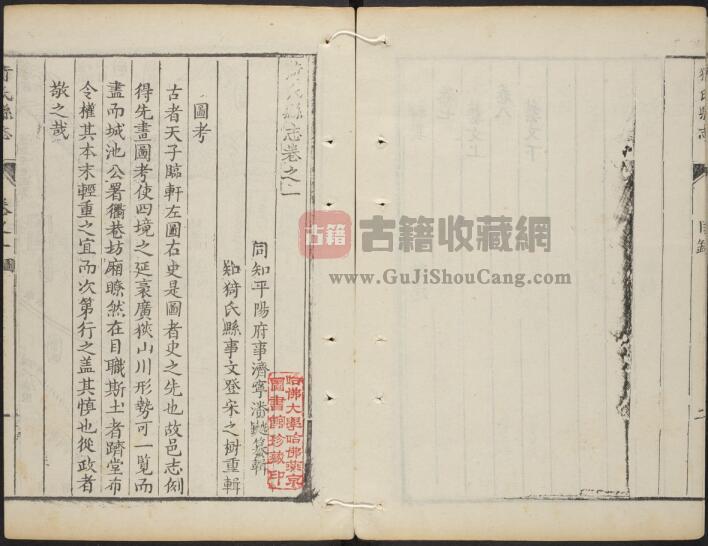 猗氏縣志
目錄
二
猗氏縣志卷之一
同知平陽府事濟寧潘鉞纂輯
知猗氏縣事文登宋之樹重輯
圖考
古者天子臨軒左圖右史是圖者史之先也故邑志例
得先畫圖考使四境之延袤廣狹山川形勢可一覽而
盡而城池公署衢巷坊廂瞭然在目職斯土者躋堂布
令權其本末輕重之宜而次第行之蓋其慎也從政者
敬之哉
猗氏縣志
卷之一圖
一
哈佛大學哈佛燕京
圖書館珍藏印
古籍
古籍收藏網
www.GuJiShouCang.com